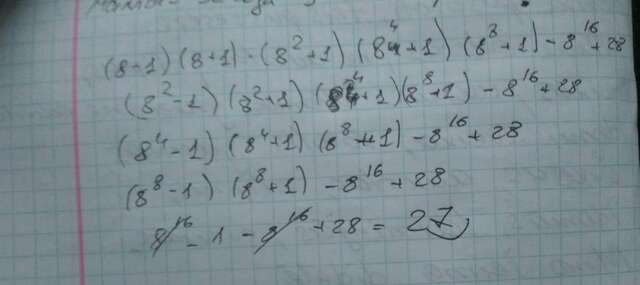 (8-1)(8+1)·(8²+1)(8⁴+1)(8⁸+1)-8¹⁶+28
(8²-1)(8²+1)(8⁴+1)(8⁸+1)-8¹⁶+28
(8⁴-1)(8⁴+1)(8⁸+1)-8¹⁶+28
(8⁸-1)(8⁸+1)-8¹⁶+28
8¹⁶-1-8¹⁶+28=27